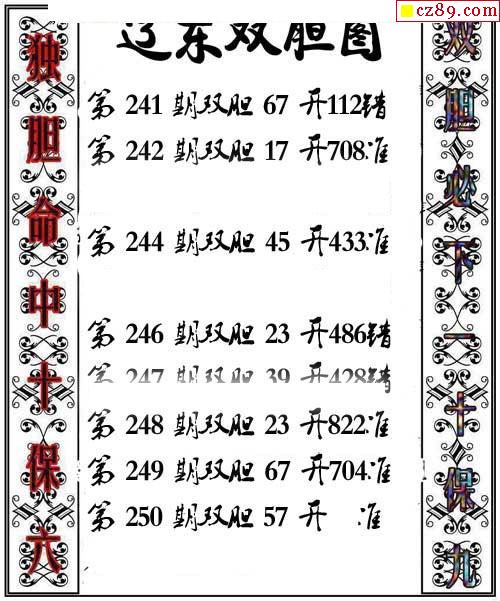 cz89.com
辽东双胆图
独胆命中十保六
第 241 期双胆 67 开112错
第 242 期双胆 17 开708准
第 244 期双胆 45 开433准
第 246 期双胆 23 开486错
第 247 期双胆 39 开428错
第 248 期双胆 23 开822准
第 249 期双胆 67 开704准
第 250 期双胆 57 开 准
双胆必下一十保九